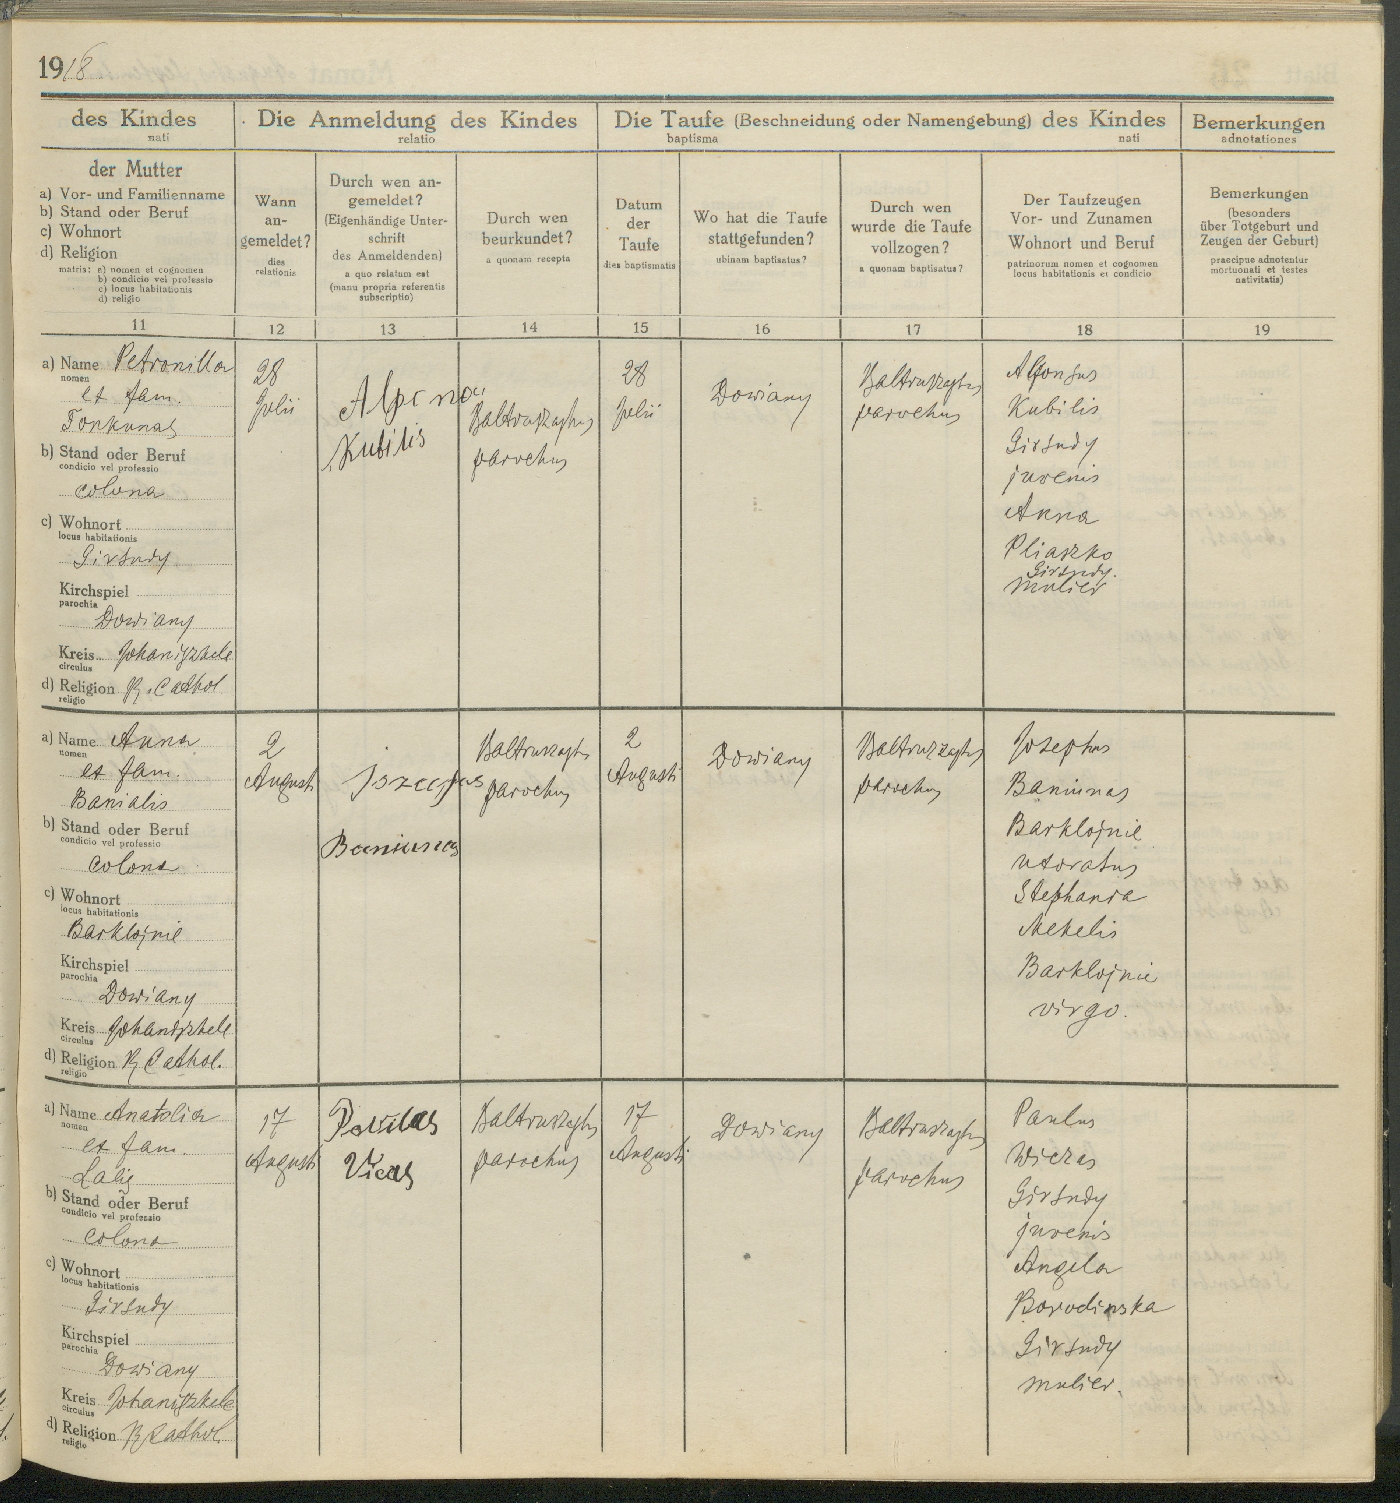 1918
des Kindes
nati
Die Anmeldung des Kindes
relatio
Die Taufe (Beschneidung oder Namengebung) des Kindes
baptisma nati
Bemerkungen
adnotationes
der Mutter
a) Vor- und Familienname
b) Stand oder Beruf
c) Wohnort
d) Religion
matris: a) nomen et cognomen
b) condicio vel professio
c) locus habitationis
d) religio
Wann
an-
gemeldet?
dies
relationis
Durch wen an-
gemeldet?
(Eigenhändige Unter-
schrift
des Anmeldenden)
a quo relatum est
(manu propria referentis
subscriptio)
Durch wen
beurkundet?
a quonam recepta
Datum
der
Taufe
dies baptismatis
Wo hat die Taufe
stattgefunden?
ubinam baptisatus?
Durch wen
wurde die Taufe
vollzogen?
a quonam baptisatus?
Der Taufzeugen
Vor- und Zunamen
Wohnort und Beruf
patrinorum nomen et cognomen
locus habitationis et condicio
Bemerkungen
(besonders
über Totgeburt und
Zeugen der Geburt)
praecipue adnotentur
mortuonati et testes
nativitatis)
11 12 13 14 15 16 17 18 19
a) Name Petronilla
nomen
et fam.
Tonkunas
b) Stand oder Beruf
condicio vel professio
colona
c) Wohnort
locus habitationis
Girsudy
Kirchspiel
parochia
Dowiany
Kreis Johanischkele
circulus
d) Religion R. Cathol
religio
28
Julii
Kubilis
Baltruszajtys
parochus
28
Julii
Dowiany
Baltruszajtys
parochus
Alfonsus
Kubilis
Girsudy
juvenis
Anna
Pliaszko
Girsudy.
mulier
a) Name Anna
nomen
et fam.
Banialis
b) Stand oder Beruf
condicio vel professio
colona
c) Wohnort
locus habitationis
Barklojnie
Kirchspiel
parochia
Dowiany
Kreis Johanischkele
circulus
d) Religion R Cathol.
religio
2
Augusti
Baniunas
Baltruszajtys
parochus
2
Augusti
Dowiany
Baltruszajtys
parochus
Josephus
Baniunas
Barklojnie
uxoratus
Stephania
Mekelis
Barklojnie
virgo.
a) Name Anatolia
nomen
et fam.
Lalis
b) Stand oder Beruf
condicio vel professio
colona
c) Wohnort
locus habitationis
Girsudy
Kirchspiel
parochia
Dowiany
Kreis Johanischkele
circulus
d) Religion R Cathol.
religio
17
Augusti
Povilas
Vicas
Baltruszajtys
parochus
17
Augusti
Dowiany
Baltruszajtys
parochus
Paulus
Wiczas
Girsudy
juvenis
Angela
Borodinska
Girsudy
mulier.